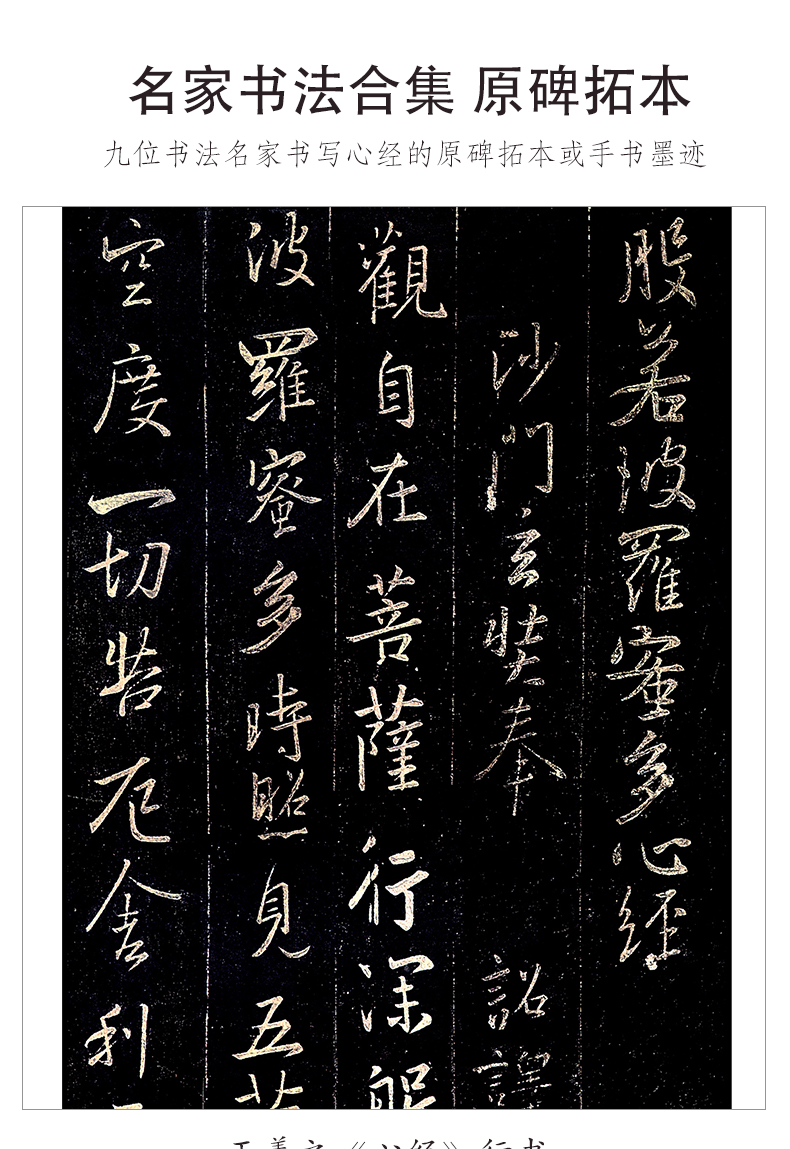 名家书法合集 原碑拓本
九位书法名家书写心经的原碑拓本或手书墨迹
般若波羅蜜多心經
沙門玄奘奉 詔譯
觀自在菩薩行深般
波羅蜜多時照見五蘊
空度一切苦厄舍利
王羲之《心经》行书